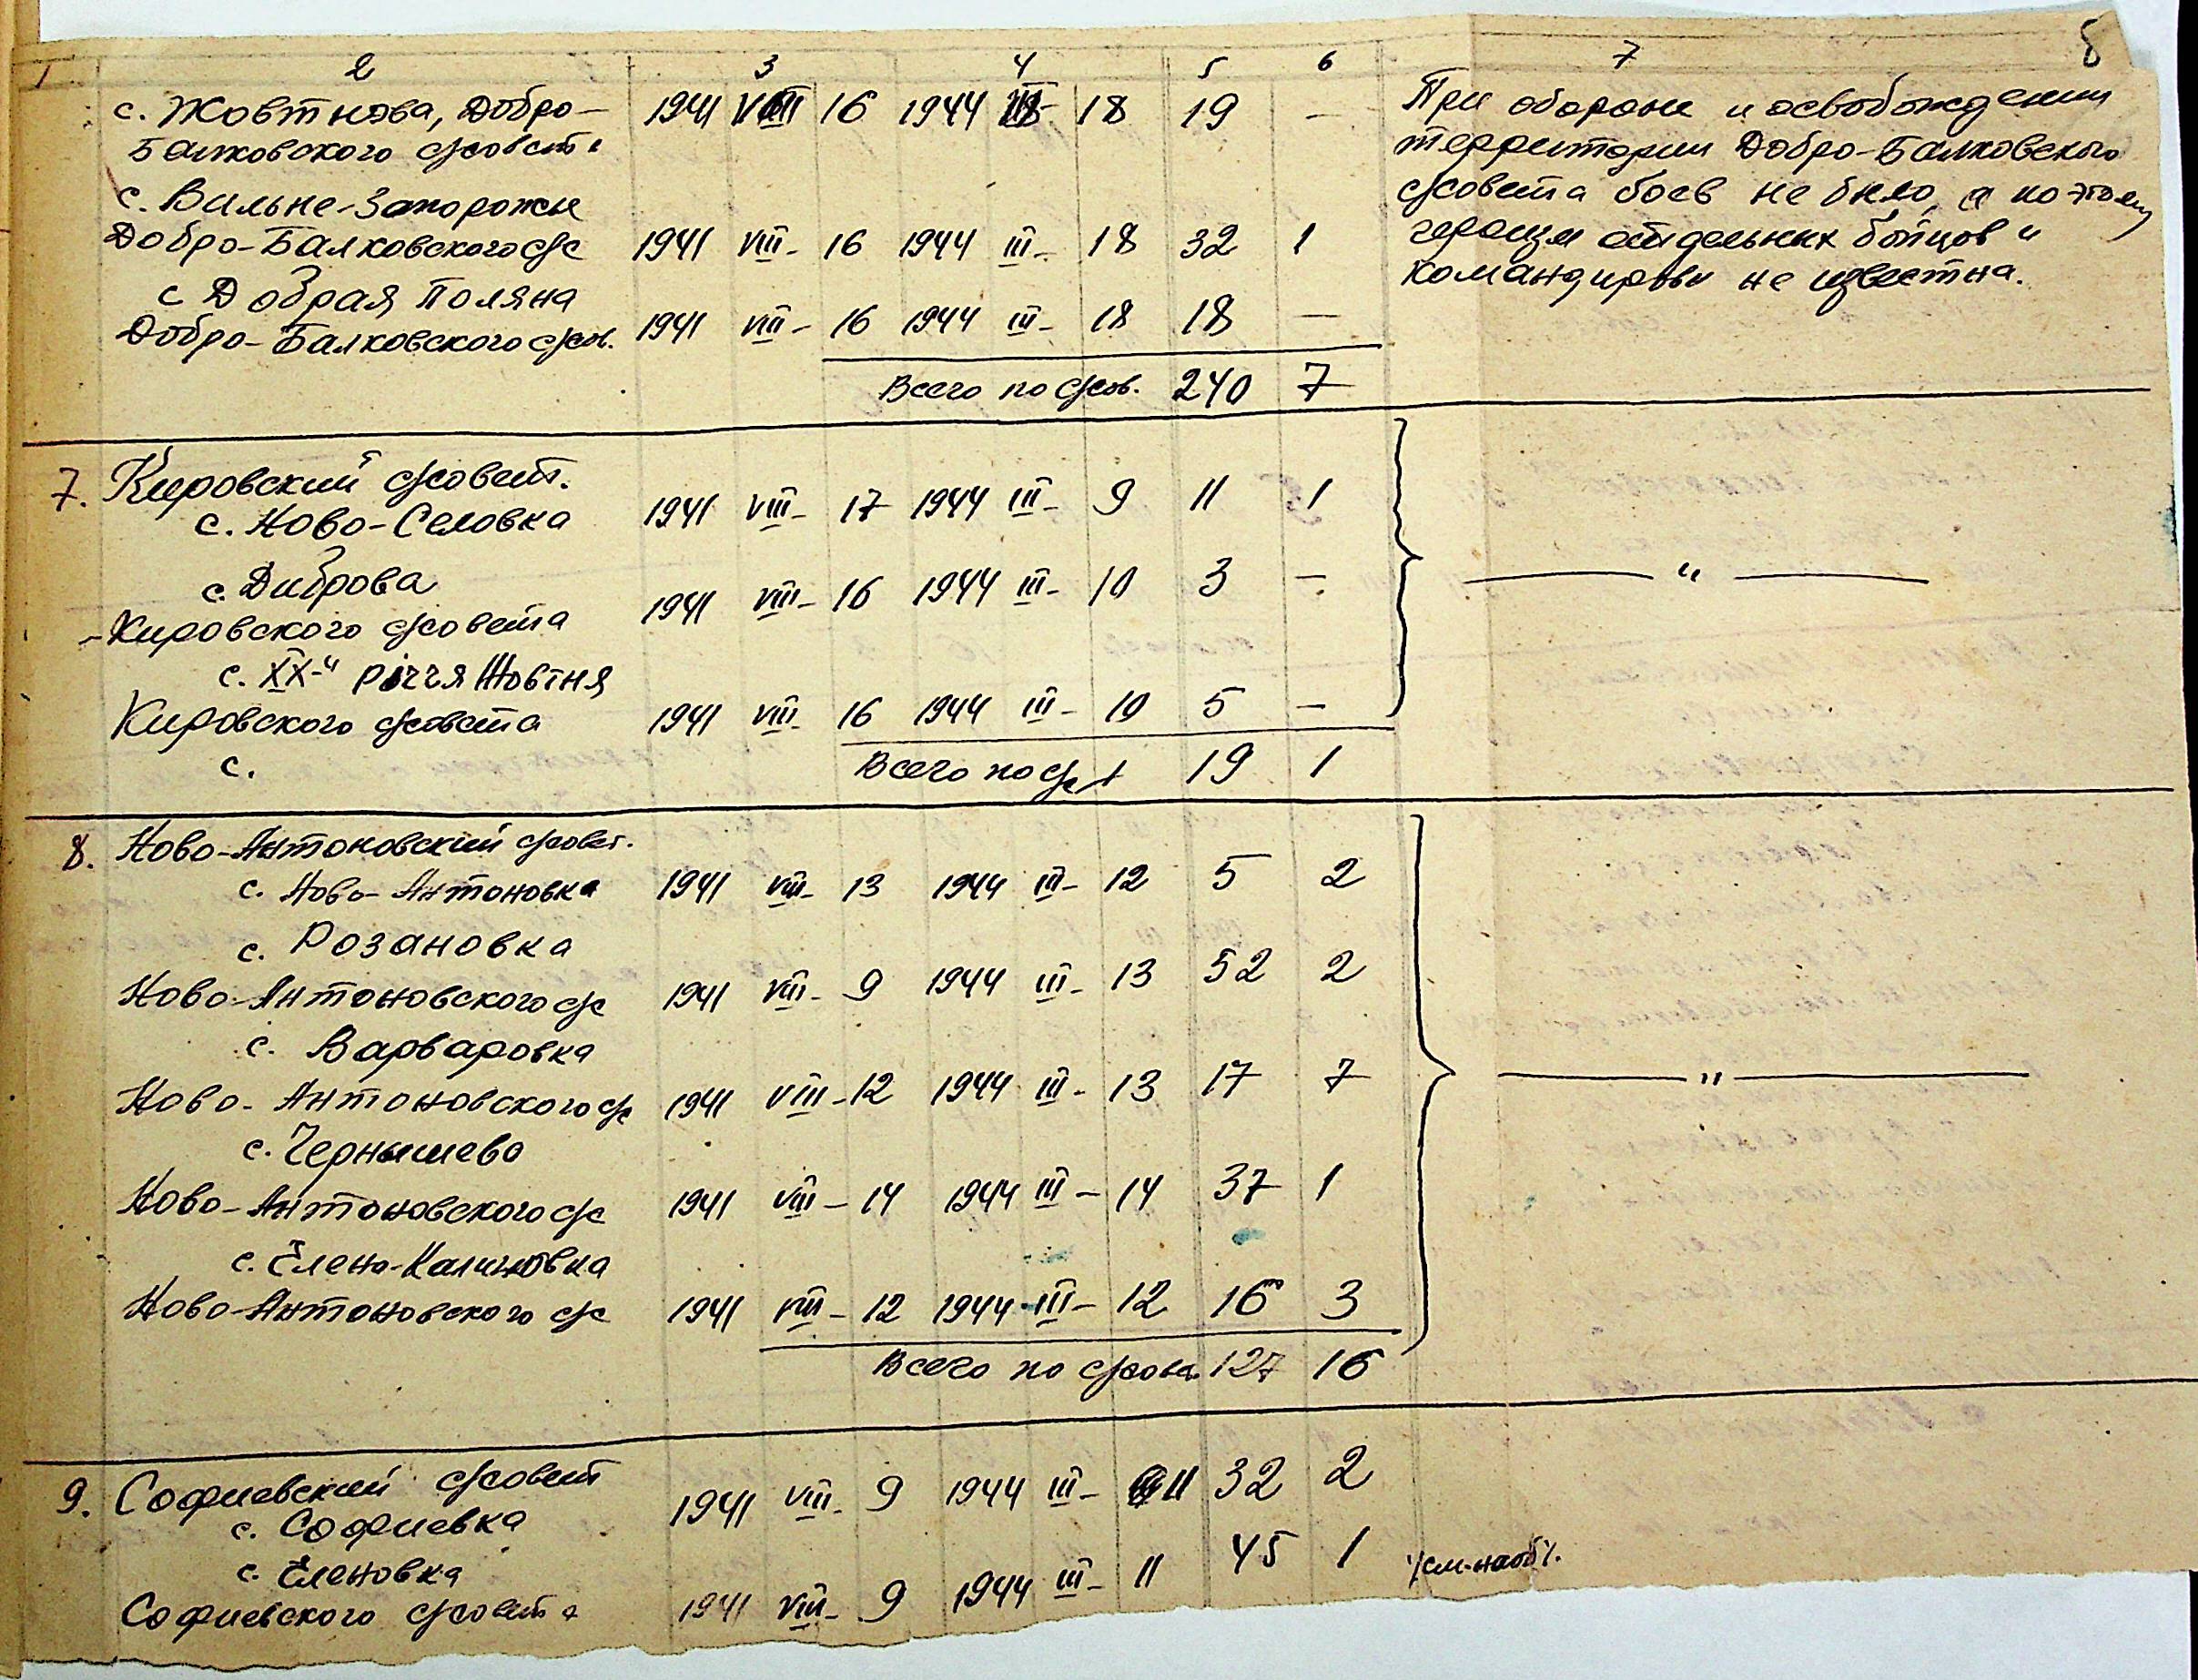 8
1 2 3 4 5 6 7
с. Жовтнова, Добро- 1941 VIII 16 1944 III 18 19 —
Балковского с/совета
с. Вильне-Запорожье
Добро-Балковского с/с 1941 VIII- 16 1944 III- 18 32 1
с Добрая Поляна
Добро-Балковского с/сов. 1941 VIII- 16 1944 III- 18 18 —
Всего по с/сов. 240 7
При обороне и освобождении
территории Добро-Балковского
с/совета боев не было, а поэтому
героизм отдельных бойцов и
командиров не известна.
7. Кировский с/совет.
с. Ново-Селовка 1941 VIII- 17 1944 III- 9 11 1
с. Диброва
-Кировского с/совета 1941 VIII- 16 1944 III- 10 3 —
с. XX-и річчя Жовтня
Кировского с/совета 1941 VIII- 16 1944 III- 10 5 —
с. Всего по с/с 19 1
— " —
8. Ново-Антоновский с/совет.
с. Ново-Антоновка 1941 VIII- 13 1944 III- 12 5 2
с. Розановка
Ново-Антоновского с/с 1941 VIII- 9 1944 III- 13 52 2
с. Варваровка
Ново-Антоновского с/с 1941 VIII- 12 1944 III- 13 17 7
с. Чернышево
Ново-Антоновского с/с 1941 VIII- 14 1944 III- 14 37 1
с. Елено-Калиновка
Ново-Антоновского с/с 1941 VIII- 12 1944 III- 12 16 3
Всего по с/сове. 127 16
— " —
9. Софиевский с/совет
с. Софиевка 1941 VIII- 9 1944 III- 11 32 2
с. Еленовка
Софиевского с/совета 1941 VIII- 9 1944 III- 11 45 1
/см. на об/.